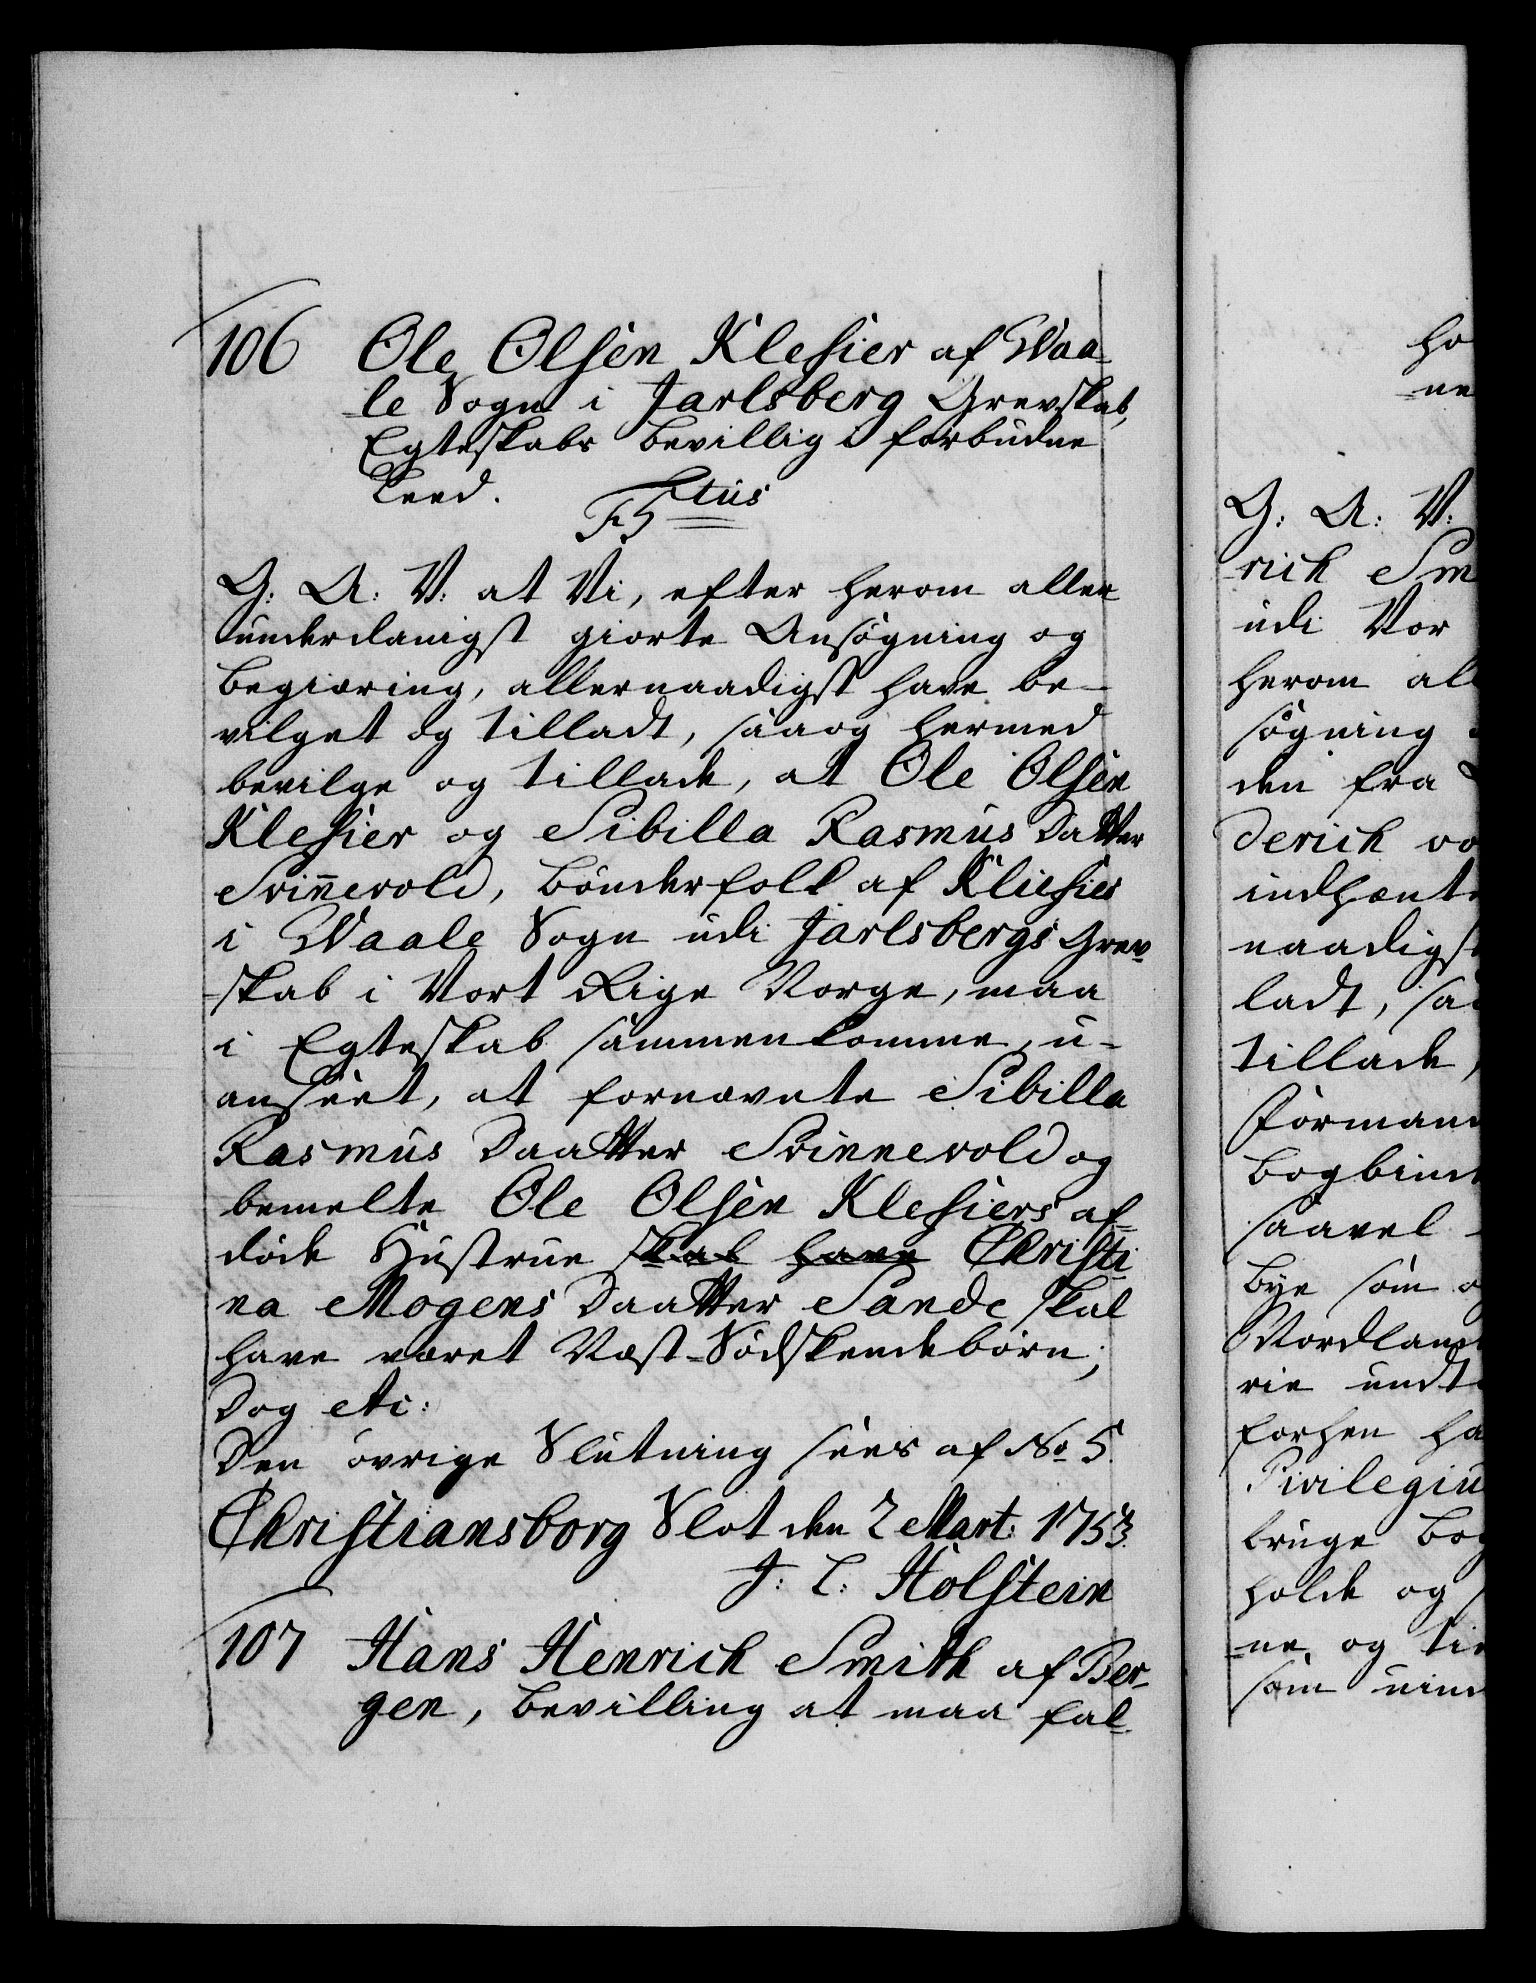 106 Ole Olsen Klefier af Waa-
le Sogn i Jarlsberg Grevskab,
Egteskabs Bevillig i forbudne
Leed.
F5tus
G: A: V: at Vi, efter herom aller
underdanigst giorte Ansøgning og
Begiæring, allernaadigst have be-
vilget og tilladt, saaog hermed
bevilge og tillade, at Ole Olsen
Klefier og Sibilla Rasmus Datter
Svinnevold, Bønderfolk af Kliefier
i Waale Sogn udi Jarlsbergs Grev-
skab i Vort Rige Norge, maa
i Egteskab sammenkomme, u-
anseet, at fornævnte Sibilla
Rasmus Daatter Svinnevold og
bemelte Ole Olsen Klefiers af-
døde Hustrue skal have Christi
na Mogens Daatter Sande skal
have været Næst-Sødskendebørn;
Dog etc:
Den øvrige Slutning sees af No 5.
Christiansborg Slot den 2 Mart: 1753.
J: L: Holstein
107 Hans Henrich Smith af Ber-
gen, Bevilling at maa fal-
ho
-ne
G: A: V:
rich Sm
udi Vor
herom al
søgning
den fra
derich vo
indhænte
naadigst
ladt, saa
tillade,
Formand
Bogbind
saavel
Bye som o
Nordland
rie undt
forhen ha
Privilegiu
bruge Bog
holde og
-ne og ti
som uind